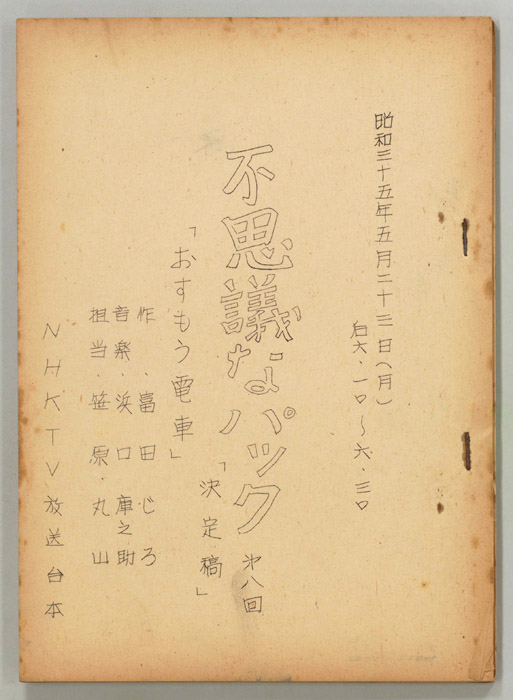 昭和三十五年五月二十三日(月)
后六・一〇〜六・三〇
不思議なパック
第八回
「決定稿」
「おすもう電車」
作・富田じろ
音楽・浜口庫之助
担当・笹原・丸山
NHKTV放送台本